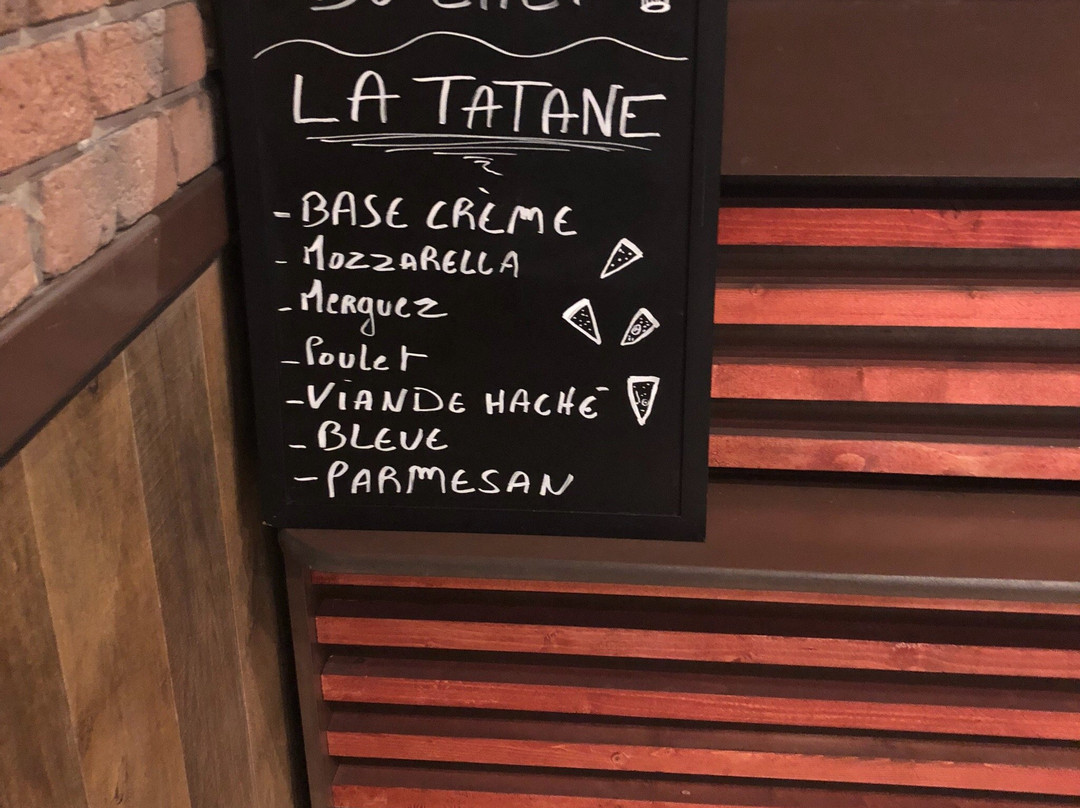 DU CHEF
LA TATANE
- BASE CRÈME
- MOZZARELLA
- Merguez
- Poulet
- VIANDE HACHÉ
- BLEUE
- PARMESAN